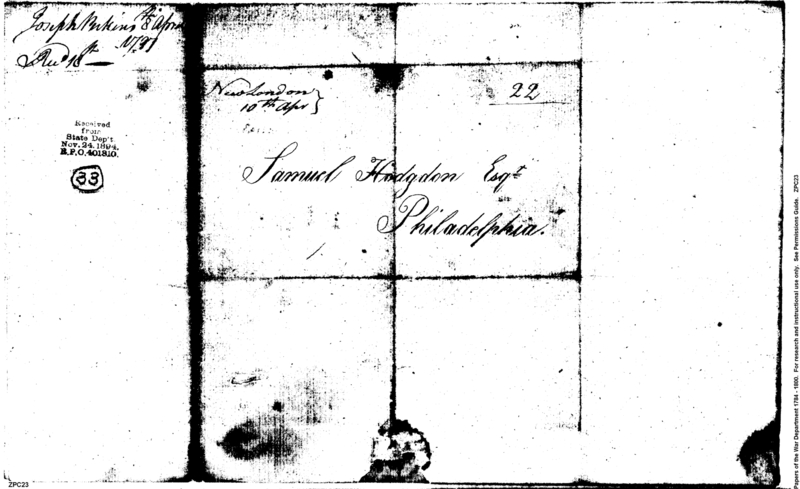 Joseph Perkins 8 Apr
1797
Recd 18th
Received
from
State Dep't.
Nov. 24, 1894.
R.P.O. 401810.
33
New London
10th Apr
22
Samuel Hodgdon Esqr
Philadelphia.
ZPC23
Papers of the War Department 1784 - 1800. For research and instructional use only. See Permissions Guide. ZPC23